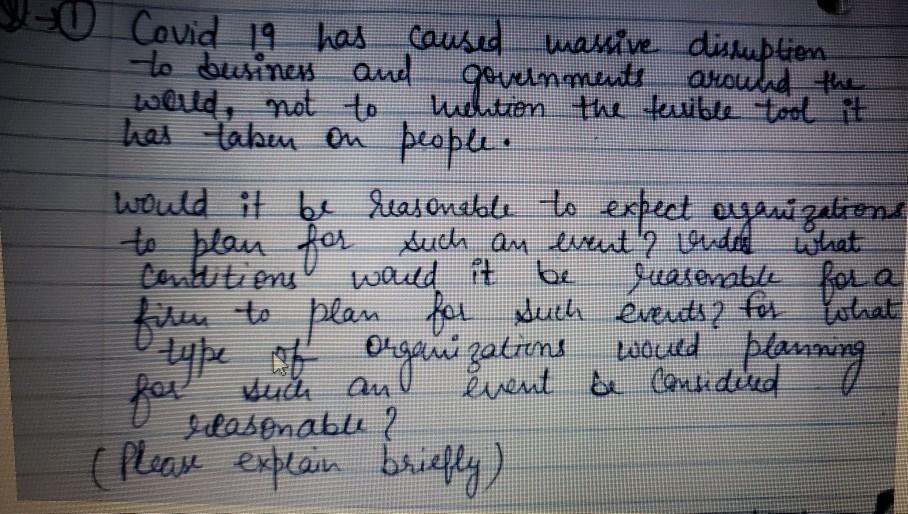 Q→① Covid 19 has caused massive disruption
to business and governments around the
world, not to mention the terrible tool it
has taken on people.
would it be reasonable to expect organizations
to plan for such an event? Under what
conditions would it be reasonable for a
firm to plan for such events? for what
type of organizations would planning
for such an event be considered
reasonable?
(Please explain briefly)